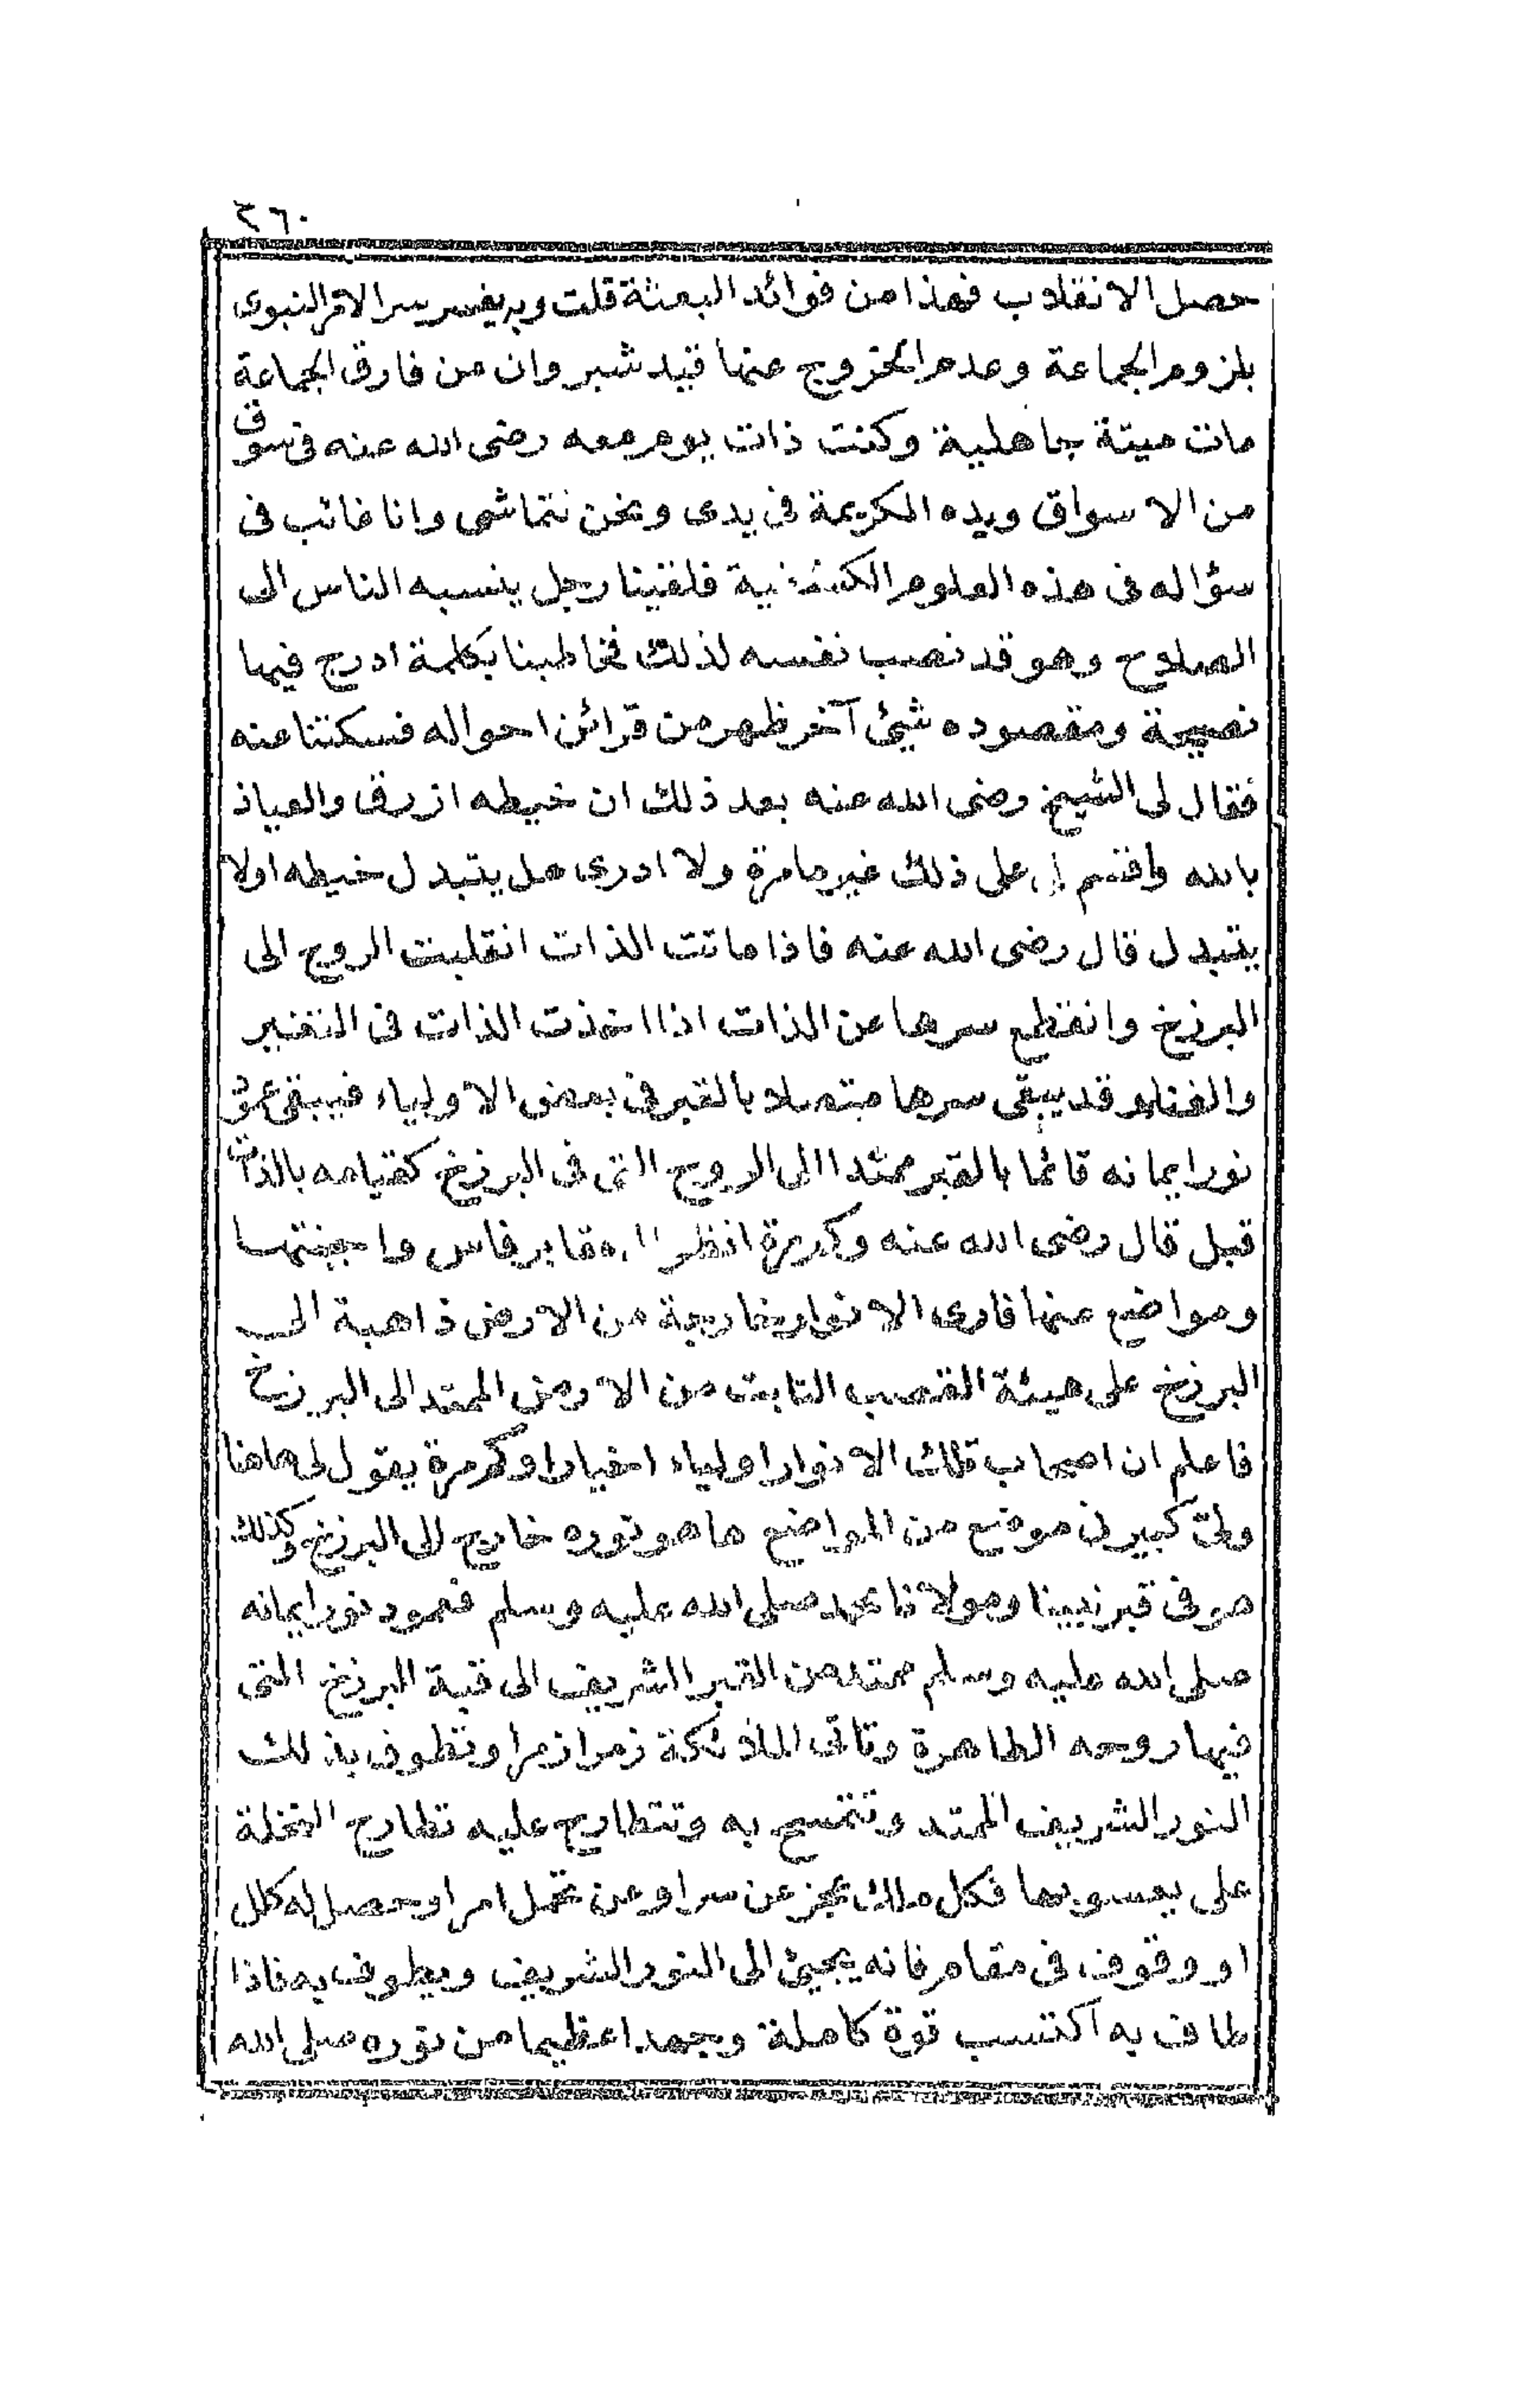 ٢٦٠
حصل الانقلاب فهذا من فوائد البعثة قلت وبه يفسر سر الامر النبوى
بلزوم الجماعة وعدم الخروج عنها قيد شبر وان من فارق الجماعة
مات ميتة جاهلية وكنت ذات يوم معه رضى الله عنه فى سوق
من الاسواق ويده الكريمة فى يدى ونحن نتماشى وانا غائب فى
سؤاله فى هذه العلوم الكشفية فلقينا رجل ينسبه الناس الى
الصلاح وهو قد نصب نفسه لذلك فخاطبنا بكلمة ادرج فيها
نصيحة ومقصوده شئ آخر ظهر من قرائن احواله فسكتنا عنه
فقال لى الشيخ رضى الله عنه بعد ذلك ان خيطه ازرق والعياذ
بالله واقسم لى على ذلك غير ما مرة ولا ادرى هل يتبدل خيطه اولا
يتبدل قال رضى الله عنه فاذا ماتت الذات انقلبت الروح الى
البرزخ وانقطع سرها عن الذات اذا اخذت الذات فى التغير
والفناء وقد يبقى سرها متصلا بالقبر فى بعض الاولياء فيبقى عمود
نور ايمانه قائما بالقبر ممتدا الى الروح التى فى البرزخ كقيامه بالذات
قبل قال رضى الله عنه وكم مرة انظر الى مقابر فاس واجنتها
ومواضع عنها فارى الانوار خارجة من الارض ذاهبة الى
البرزخ على هيئة القصب النابت من الارض الممتد الى البرزخ
فاعلم ان اصحاب تلك الانوار اولياء اخيارا وكم مرة يقول لى هاهنا
ولى كبير فى موضع من المواضع ها هو نوره خارج الى البرزخ وكذلك
هو فى قبر نبينا ومولانا محمد صلى الله عليه وسلم فعمود نور ايمانه
صلى الله عليه وسلم ممتد من القبر الشريف الى قبة البرزخ التى
فيها روحه الطاهرة وتاتى الملائكة زمرا زمرا وتطوف بذلك
النور الشريف الممتد وتتمسح به وتتطارح عليه تطارح النحلة
على يعسوبها فكل ملك عجز عن سر او عن تحمل امر او حصل له كلل
او وقوف فى مقام فانه يجيئ الى النور الشريف ويطوف به فاذا
طاف به اكتسب قوة كاملة وجهدا عظيما من نوره صلى الله